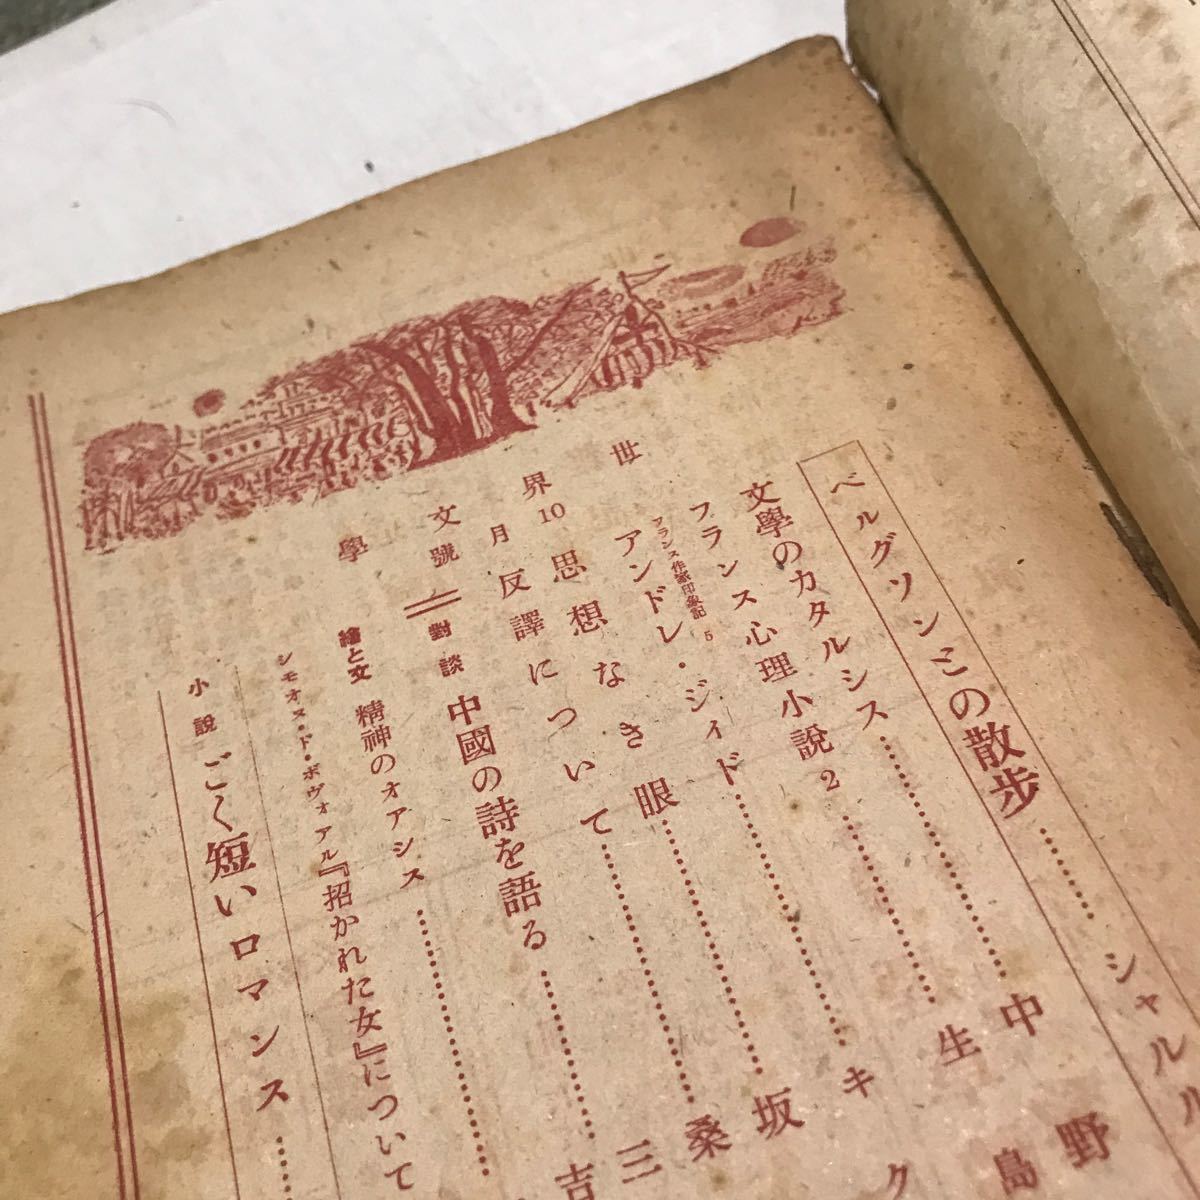 世界文學
10月號
ベルグソンとの散步……シャルル
文學のカタルシス……中野
フランス心理小說 2……生島
フランス作家印象記 5
アンドレ・ジイド……キク
思想なき眼……坂
反譯について……桑
對談 中國の詩を語る……三吉
繪と文 精神のオアシス……
シモオヌ・ド・ボヴォアル『招かれた女』について
小說 ごく短いロマンス……